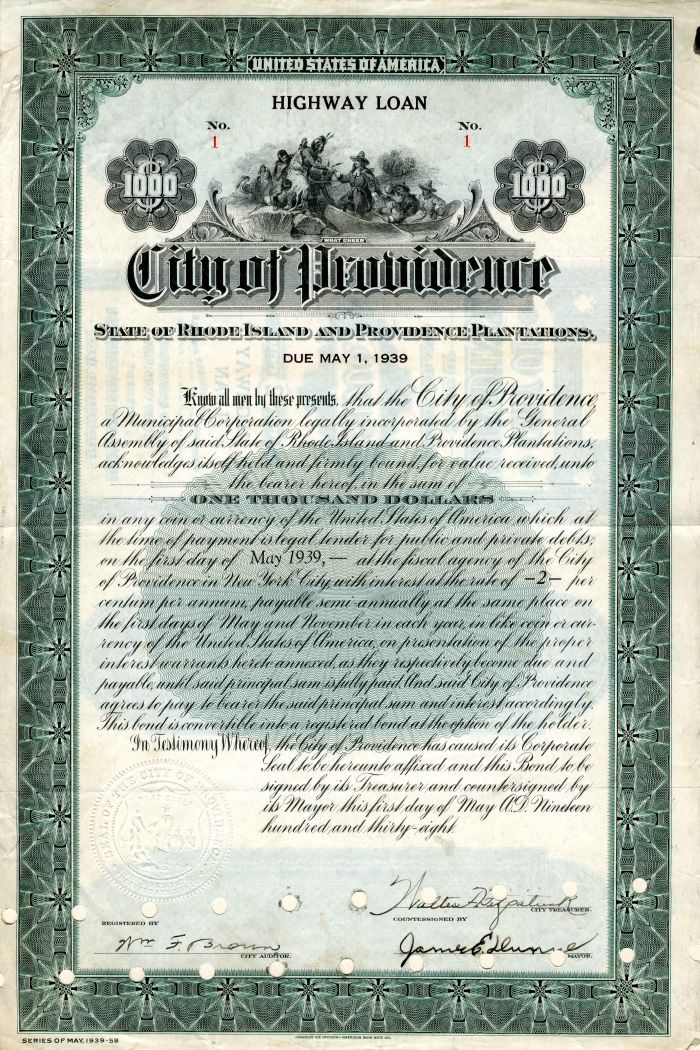 UNITED STATES OF AMERICA
HIGHWAY LOAN
No. No.
1 1
1000 1000
WHAT CHEER
City of Providence
STATE OF RHODE ISLAND AND PROVIDENCE PLANTATIONS.
DUE MAY 1, 1939
Know all men by these presents, that the City of Providence
a Municipal Corporation legally incorporated by the General
Assembly of said State of Rhode Island and Providence Plantations,
acknowledges itself held and firmly bound, for value received, unto
the bearer hereof, in the sum of
ONE THOUSAND DOLLARS
in any coin or currency of the United States of America which at
the time of payment is legal tender for public and private debts,
on the first day of May 1939,— at the fiscal agency of the City
of Providence in New York City, with interest at the rate of –2– per
centum per annum, payable semi-annually at the same place on
the first days of May and November in each year, in like coin or cur-
rency of the United States of America, on presentation of the proper
interest warrants hereto annexed, as they respectively become due and
payable, until said principal sum is fully paid. And said City of Providence
agrees to pay to bearer the said principal sum and interest accordingly.
This bond is convertible into a registered bond at the option of the holder.
In Testimony Whereof, the City of Providence has caused its Corporate
Seal to be hereunto affixed and this Bond to be
signed by its Treasurer and countersigned by
its Mayor this first day of May A.D. Nineteen
hundred and thirty-eight
SEAL OF THE CITY OF PROVIDENCE
WHAT CHEER
Walter Fitzpatrick
CITY TREASURER.
REGISTERED BY COUNTERSIGNED BY
Wm F. Brown James E. Dunne
CITY AUDITOR. MAYOR.
SERIES OF MAY, 1939-58
AMERICAN BANK NOTE CO.